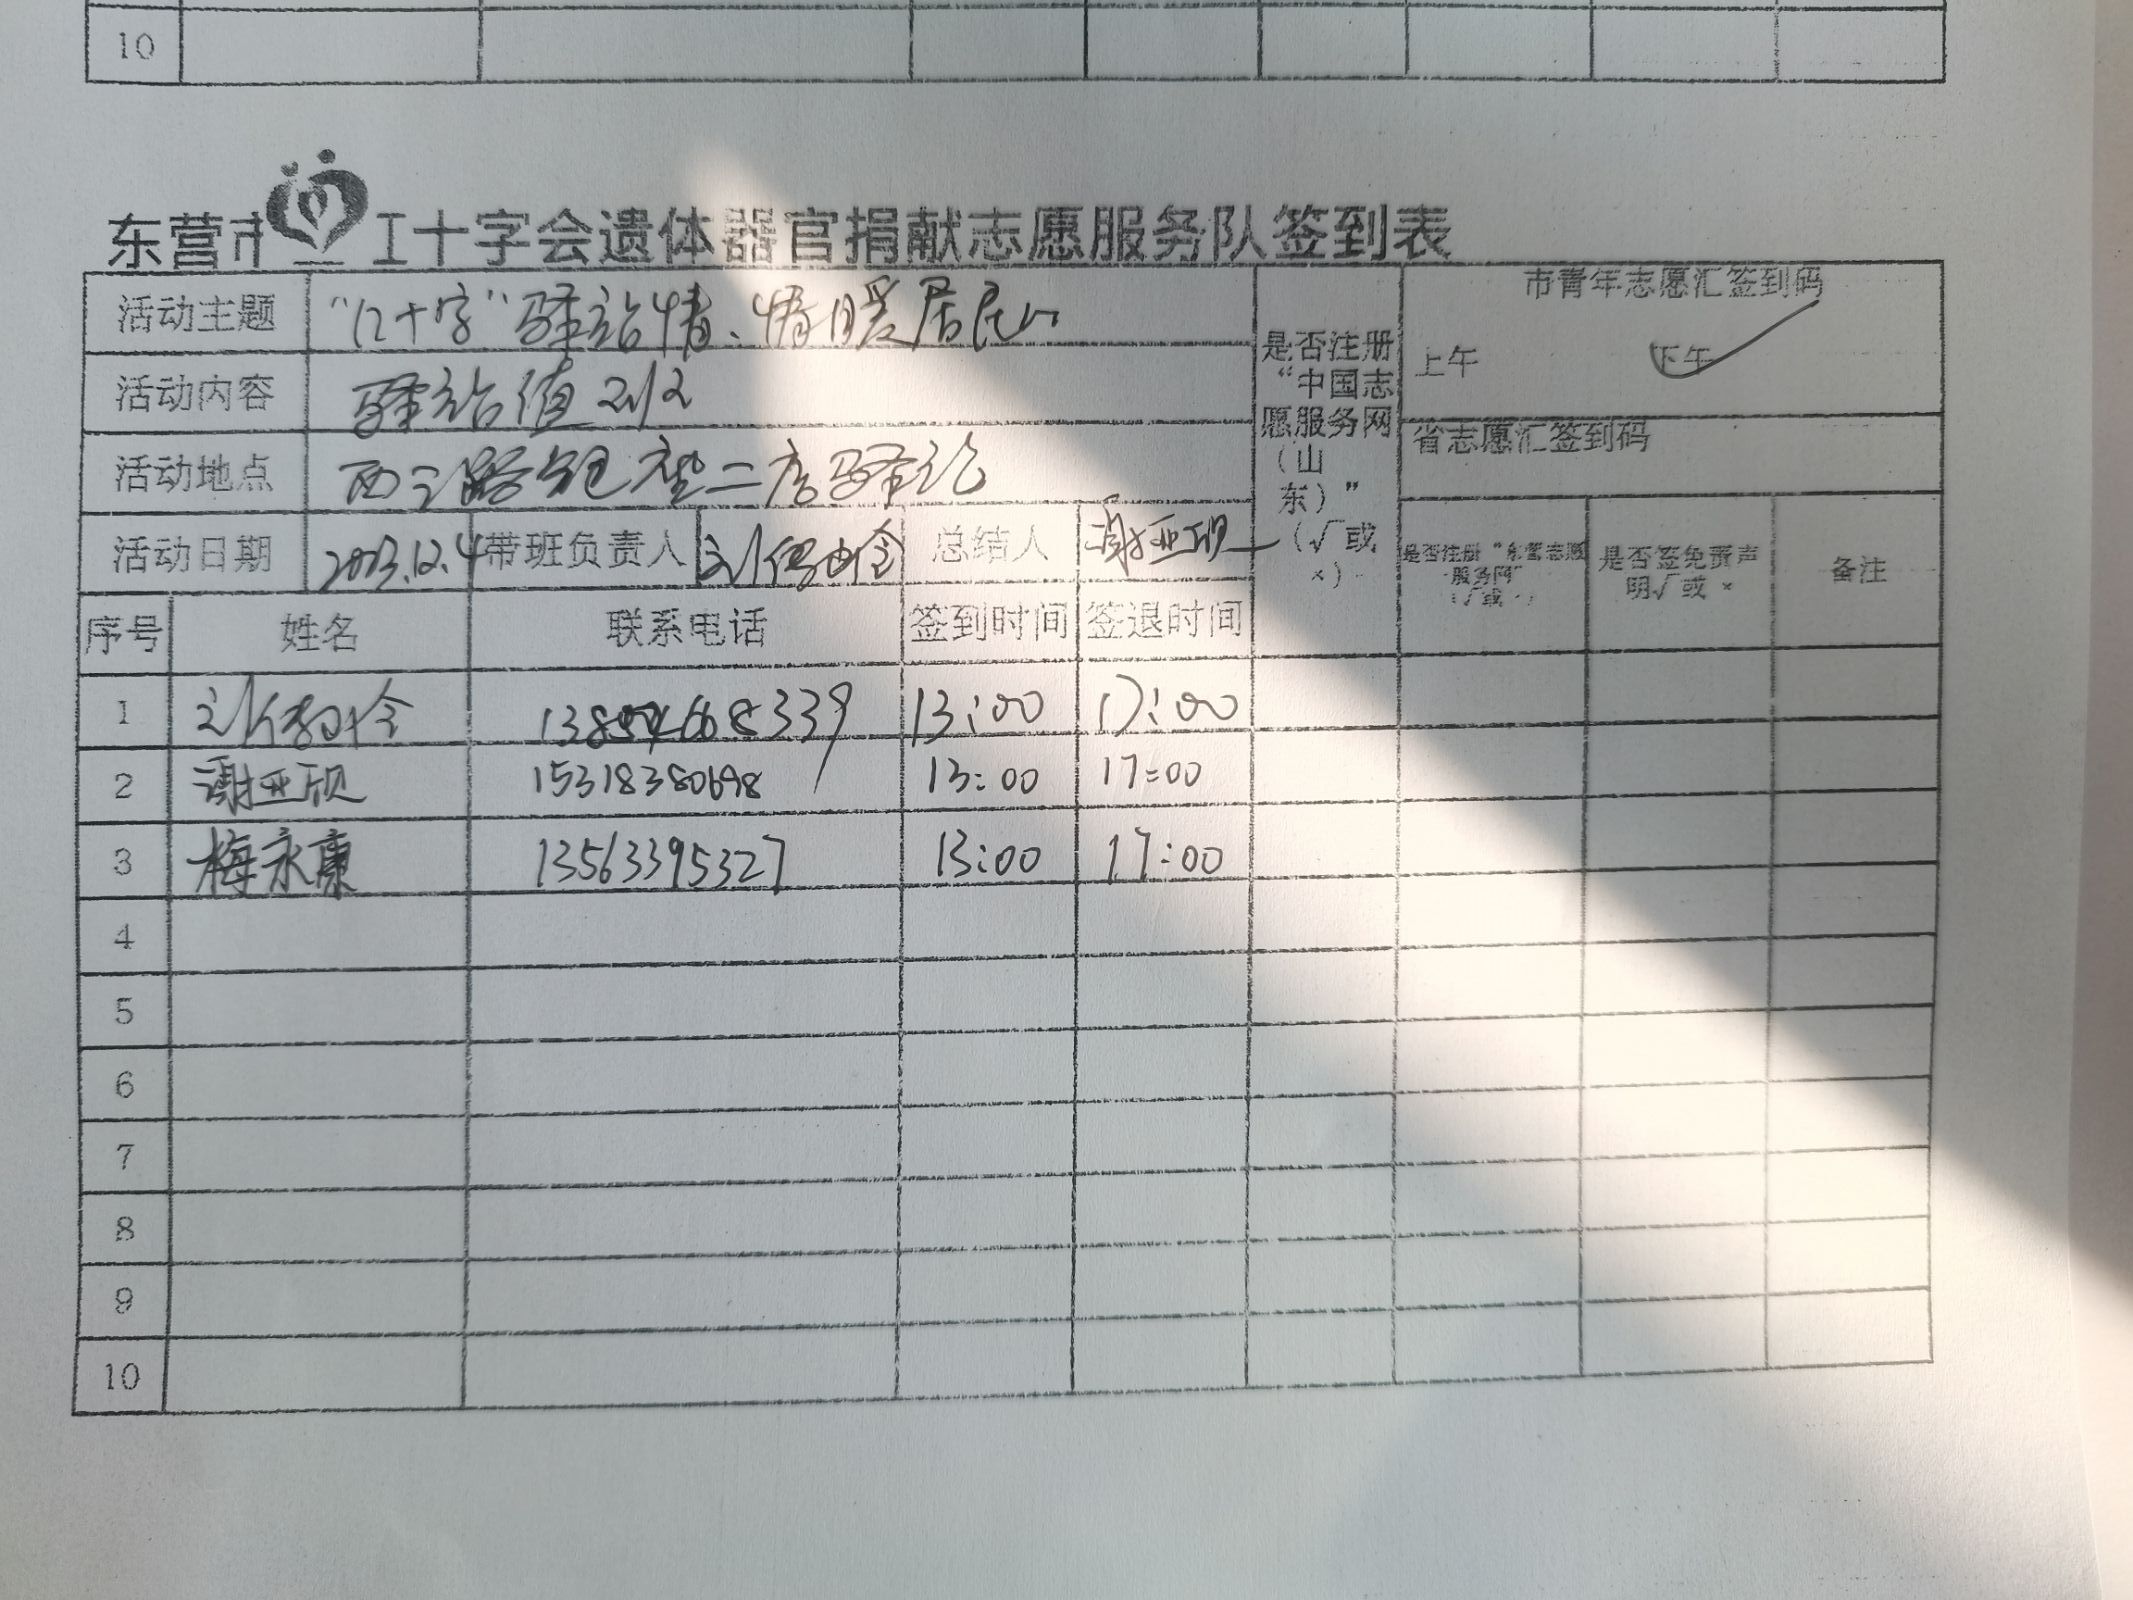 10
东营市 红十字会遗体器官捐献志愿服务队签到表
活动主题 “红十字”驿站情、情暖居民心
市青年志愿汇签到码
上午 下午
活动内容 驿站值班
是否注册“中国志愿服务网(山东)”(√或×)
省志愿汇签到码
活动地点 西三路 驿站
活动日期 2023.12.4 带班负责人 总结人 谢亚砚
是否注册“东营志愿服务网”(√或×) 是否签免责声明√或× 备注
序号 姓名 联系电话 签到时间 签退时间
1 13:00 17:00
2 谢亚砚 15318380698 13:00 17:00
3 梅永康 13563395327 13:00 17:00
4
5
6
7
8
9
10